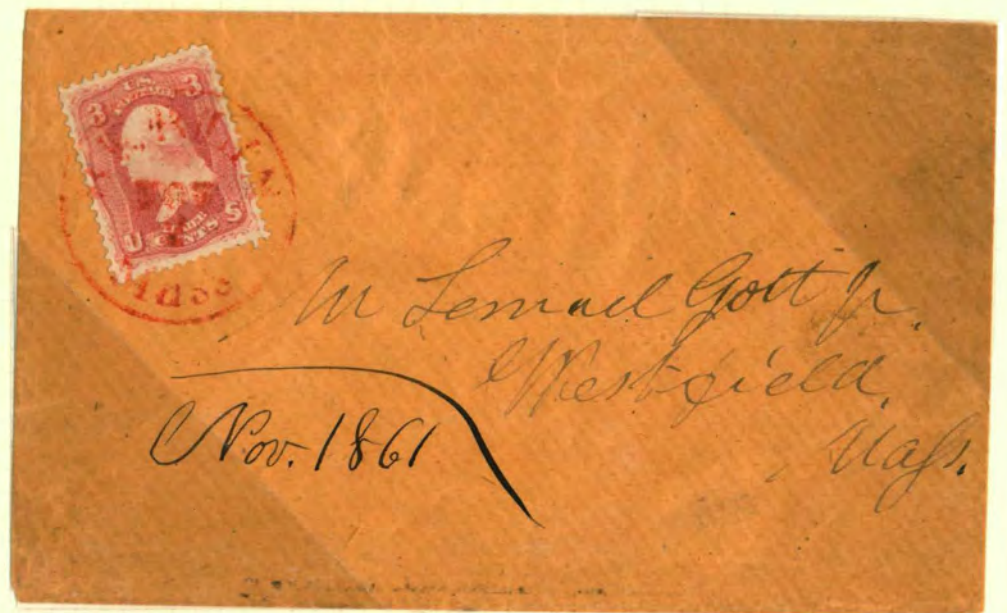 3 U.S. POSTAGE 3
U THREE CENTS S
Mr Lemuel Gott Jr.
Westfield,
Mass.
Nov. 1861